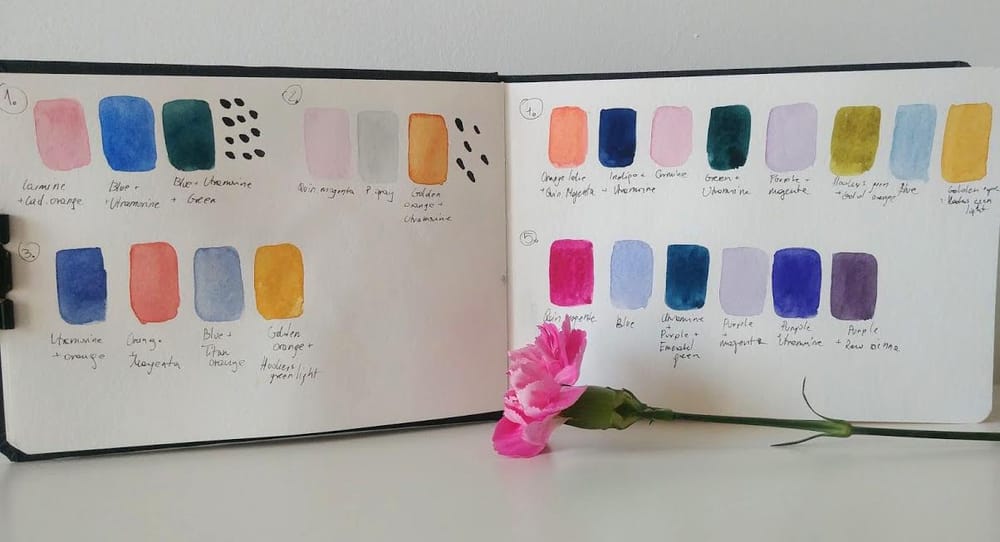 1.
Carmine
+ Cad. orange
Blue +
+ Utramarine
Blue + Utramarine
+ Green
2.
Quin magenta
P. gray
Golden
orange +
Utramarine
3.
Utramarine
+ orange
Orange
+ Magenta
Blue +
Titan
orange
Golden
orange +
Hookers
green light
+ Quin. Magenta
Indigo +
+ Utramarine
Carmine
Green +
Utramarine
Purple +
magenta
Hookers green
+ Gold orange
Blue
Golden
light
5.
Quin magenta
Blue
Utramarine
+
Purple +
Emerald
green
Purple
+ magenta
Purple
+ Utramarine
Purple
+ Raw